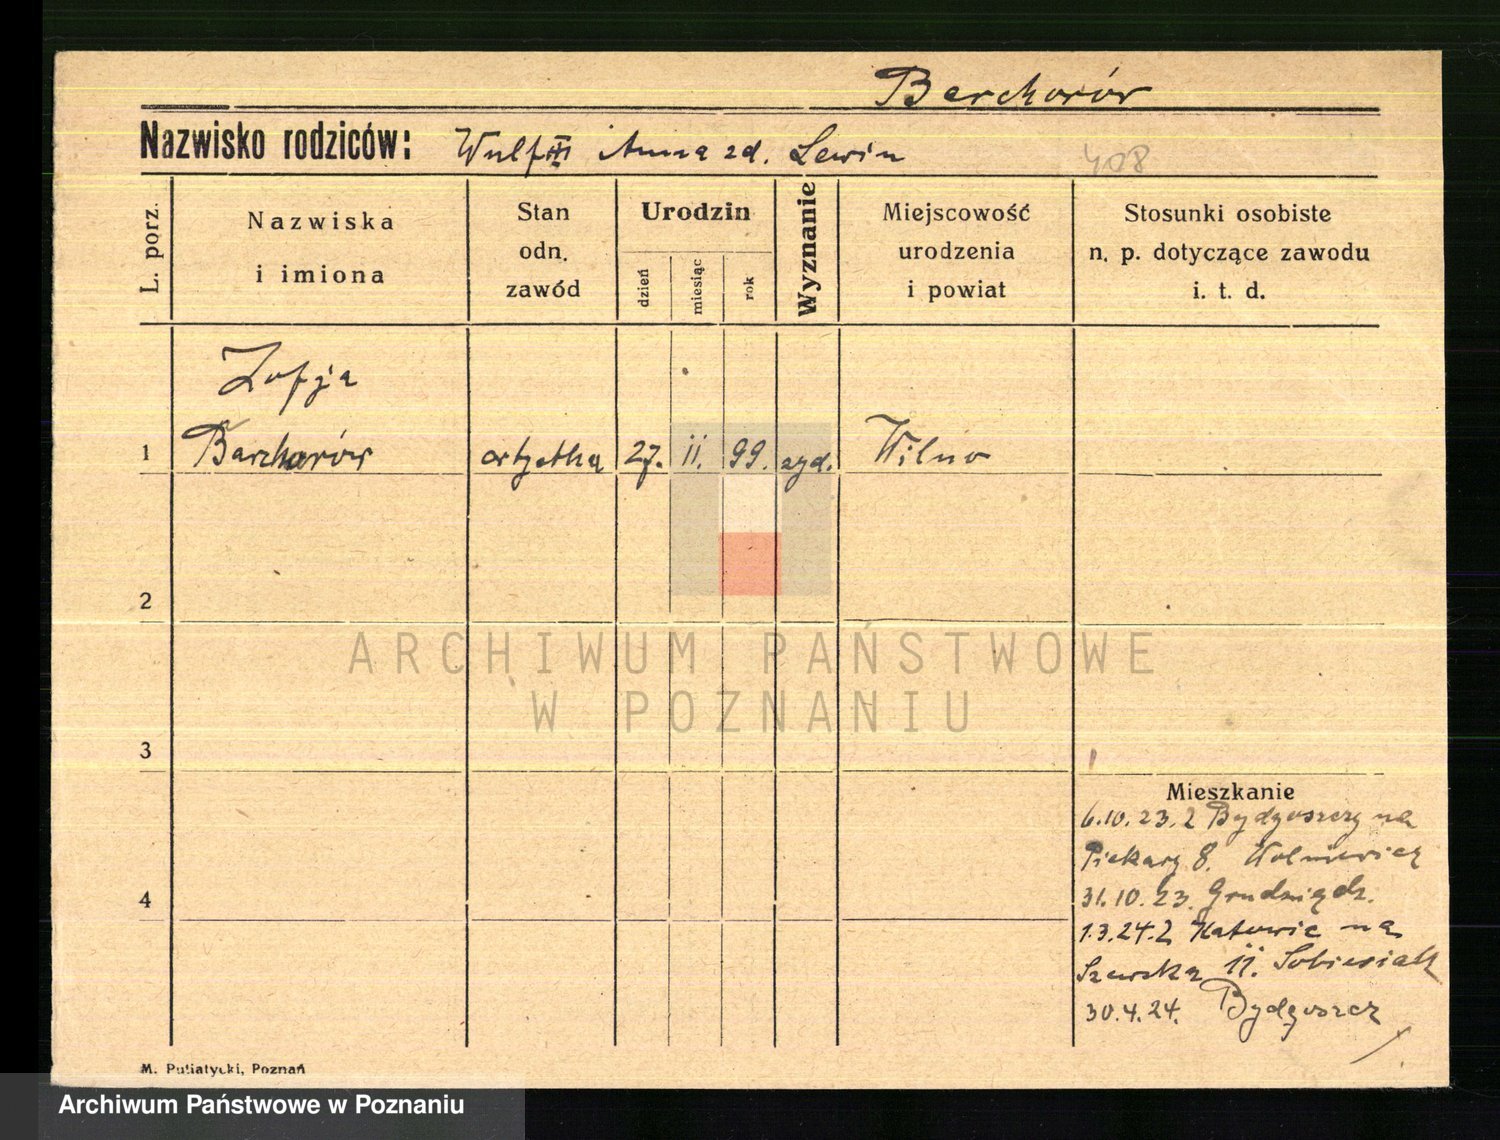 Barchorów
Nazwisko rodziców: Wulf i Anna zd. Lewin
408
L. porz.
Nazwiska
i imiona
Stan
odn.
zawód
Urodzin
dzień
miesiąc
rok
Wyznanie
Miejscowość
urodzenia
i powiat
Stosunki osobiste
n. p. dotyczące zawodu
i. t. d.
Zofja
1 Barchorów artystka 27. ii. 99. żyd. Wilno
2
ARCHIWUM PAŃSTWOWE
W POZNANIU
3
Mieszkanie
6.10.23. z Bydgoszczy na
Piekary 8. Wolniewicz
4
31.10.23. Grudziądz.
1.3.24. z Katowic na
Szewska 11. Sobiesiak
30.4.24. Bydgoszcz
M. Putiatycki, Poznań
Archiwum Państwowe w Poznaniu